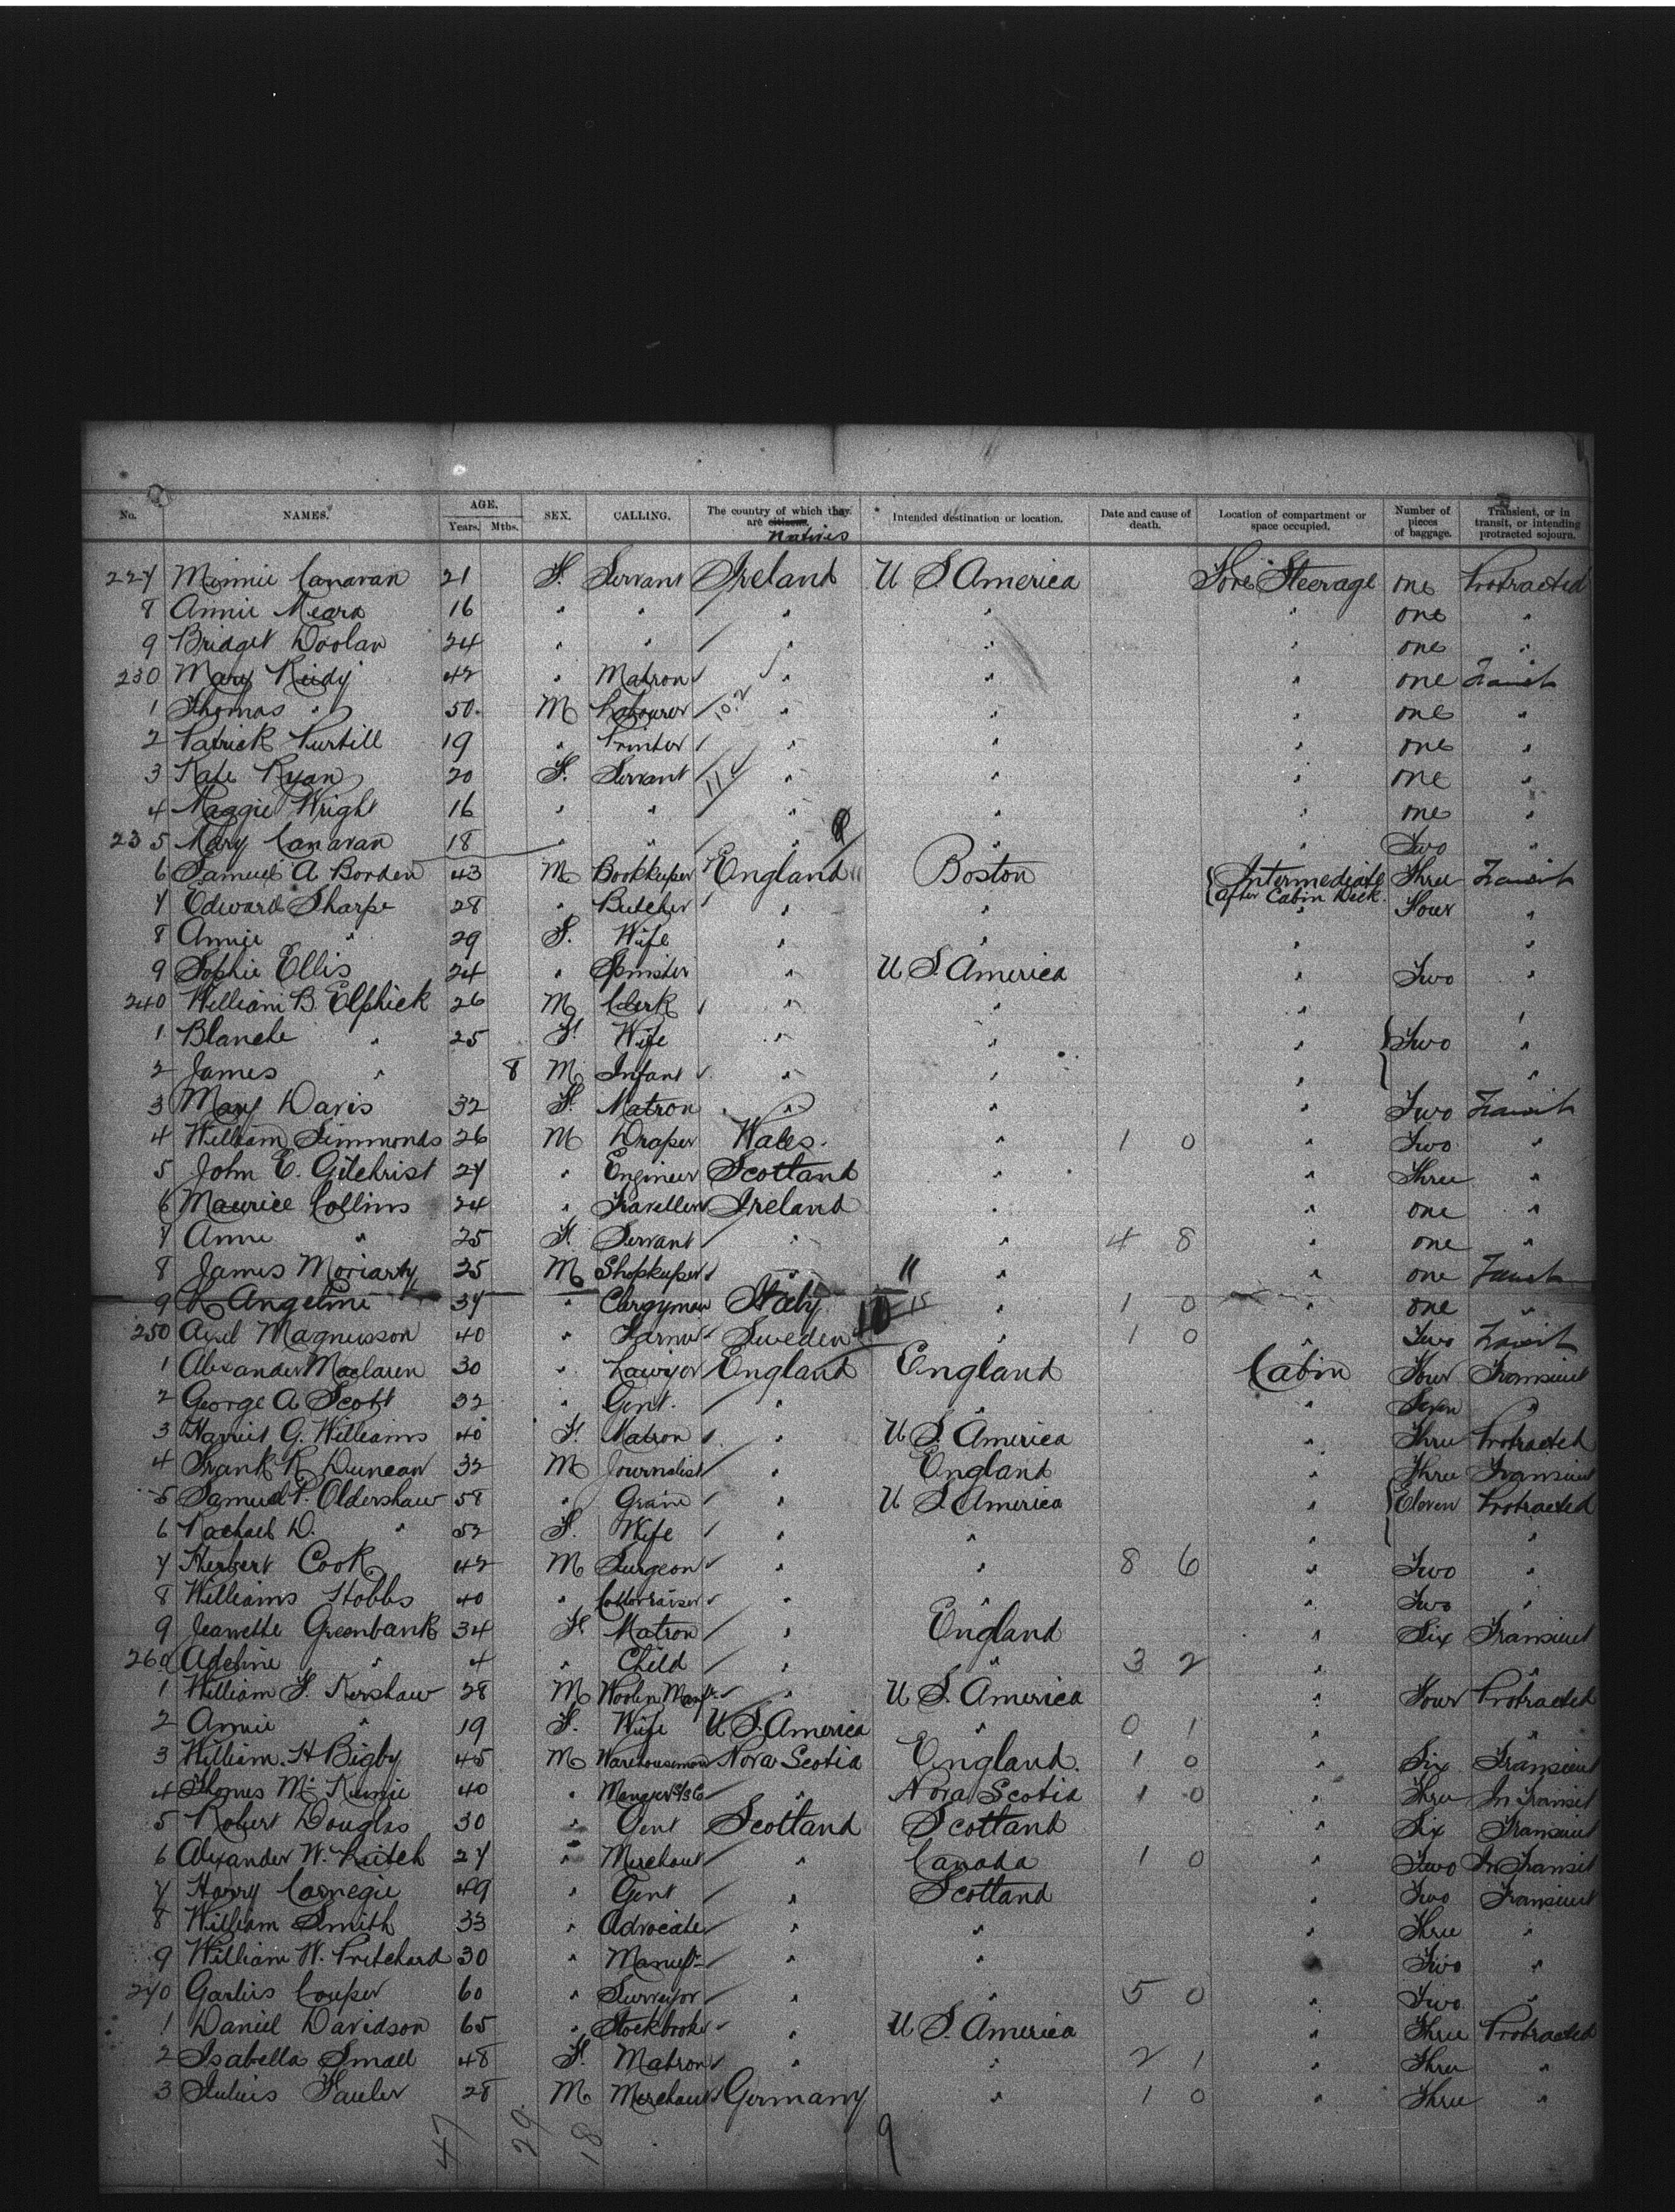 No. NAMES. AGE. Years. Mths. SEX. CALLING. The country of which they are citizens. Natives Intended destination or location. Date and cause of death. Location of compartment or space occupied. Number of pieces of baggage. Transient, or in transit, or intending protracted sojourn.
227 Minnie Canavan 21 F. Servant Ireland U S America Fore Steerage one Protracted
8 Annie Meara 16 " " " " " one "
9 Bridget Doolan 24 " " " " " one "
230 Mary Reidy 42 " Matron " " " one Transit
1 Thomas " 50 M Labourer " " " one "
2 Patrick Purtill 19 " Printer " " " one "
3 Kate Ryan 20 F. Servant " " " one "
4 Maggie Wright 16 " " " " " one "
235 Mary Canavan 18 " " " " " Two "
6 Samuel A Borden 43 M Bookkeeper England Boston Intermediate after Cabin Deck Three Transit
7 Edward Sharpe 28 " Butcher " " " Four "
8 Annie " 29 F. Wife " " " "
9 Sophie Ellis 24 " Spinster " U S. America " Two "
240 William B. Elphick 26 M Clerk " " " "
1 Blanche " 25 F. Wife " " " Two "
2 James " 8 M Infant " " " "
3 Mary Davis 32 F. Matron " " " Two Transit
4 William Simmonds 26 M Draper Wales " 1 0 " Two "
5 John E. Gilchrist 27 " Engineer Scotland " " Three "
6 Maurice Collins 24 " Traveller Ireland " " one "
7 Anne " 25 F. Servant " " 4 8 " one "
8 James Moriarty 25 M Shopkeeper " " " one Transit
9 Angelini 37 " Clergyman Italy " 1 0 " one "
250 Axel Magnusson 40 " Farmer Sweden " 1 0 " Two Transit
1 Alexander Maclaren 30 " Lawyer England England Cabin Four Transient
2 George A Scott 32 " Gent. " " " Seven "
3 Harriet G. Williams 40 F. Matron " U S. America " Three Protracted
4 Frank R Duncan 32 M Journalist " England " Three Transient
5 Samuel P. Oldershaw 58 " Grain " U S. America " Eleven Protracted
6 Rachael D. " 52 F. Wife " " " "
7 Herbert Cook 42 M Surgeon " " 8 6 " Two "
8 Williams Hobbs 40 " " " " Two "
9 Jeanette Greenbank 34 F. Matron " England " Six Transient
260 Adeline " 4 " Child " " 3 2 " "
1 William F. Kershaw 28 M Woolen Manfr " U S. America " Four Protracted
2 Annie " 19 F. Wife U S. America " 0 1 " "
3 William H Bigby 45 M Warehouseman Nova Scotia England. 1 0 " Six Transient
4 Thomas Mc Kenzie 40 " " Nova Scotia 1 0 " Three In Transit
5 Robert Douglas 30 " Gent Scotland Scotland " Six Transient
6 Alexander W. Leitch 27 " Merchant " Canada 1 0 " Two In Transit
7 Harry Carnegie 49 " Gent " Scotland " Two Transient
8 William Smith 33 " Advocate " " " Three "
9 William W. Pritchard 30 " Manufr " " " Two "
270 Garlies Couper 60 " Surveyor " " 5 0 " Two "
1 Daniel Davidson 65 " Stockbroker " U S. America " Three Protracted
2 Isabella Small 48 F. Matron " " 2 1 " Three "
3 Julius 28 M Merchant Germany " 1 0 " Three "
47 29 18 9